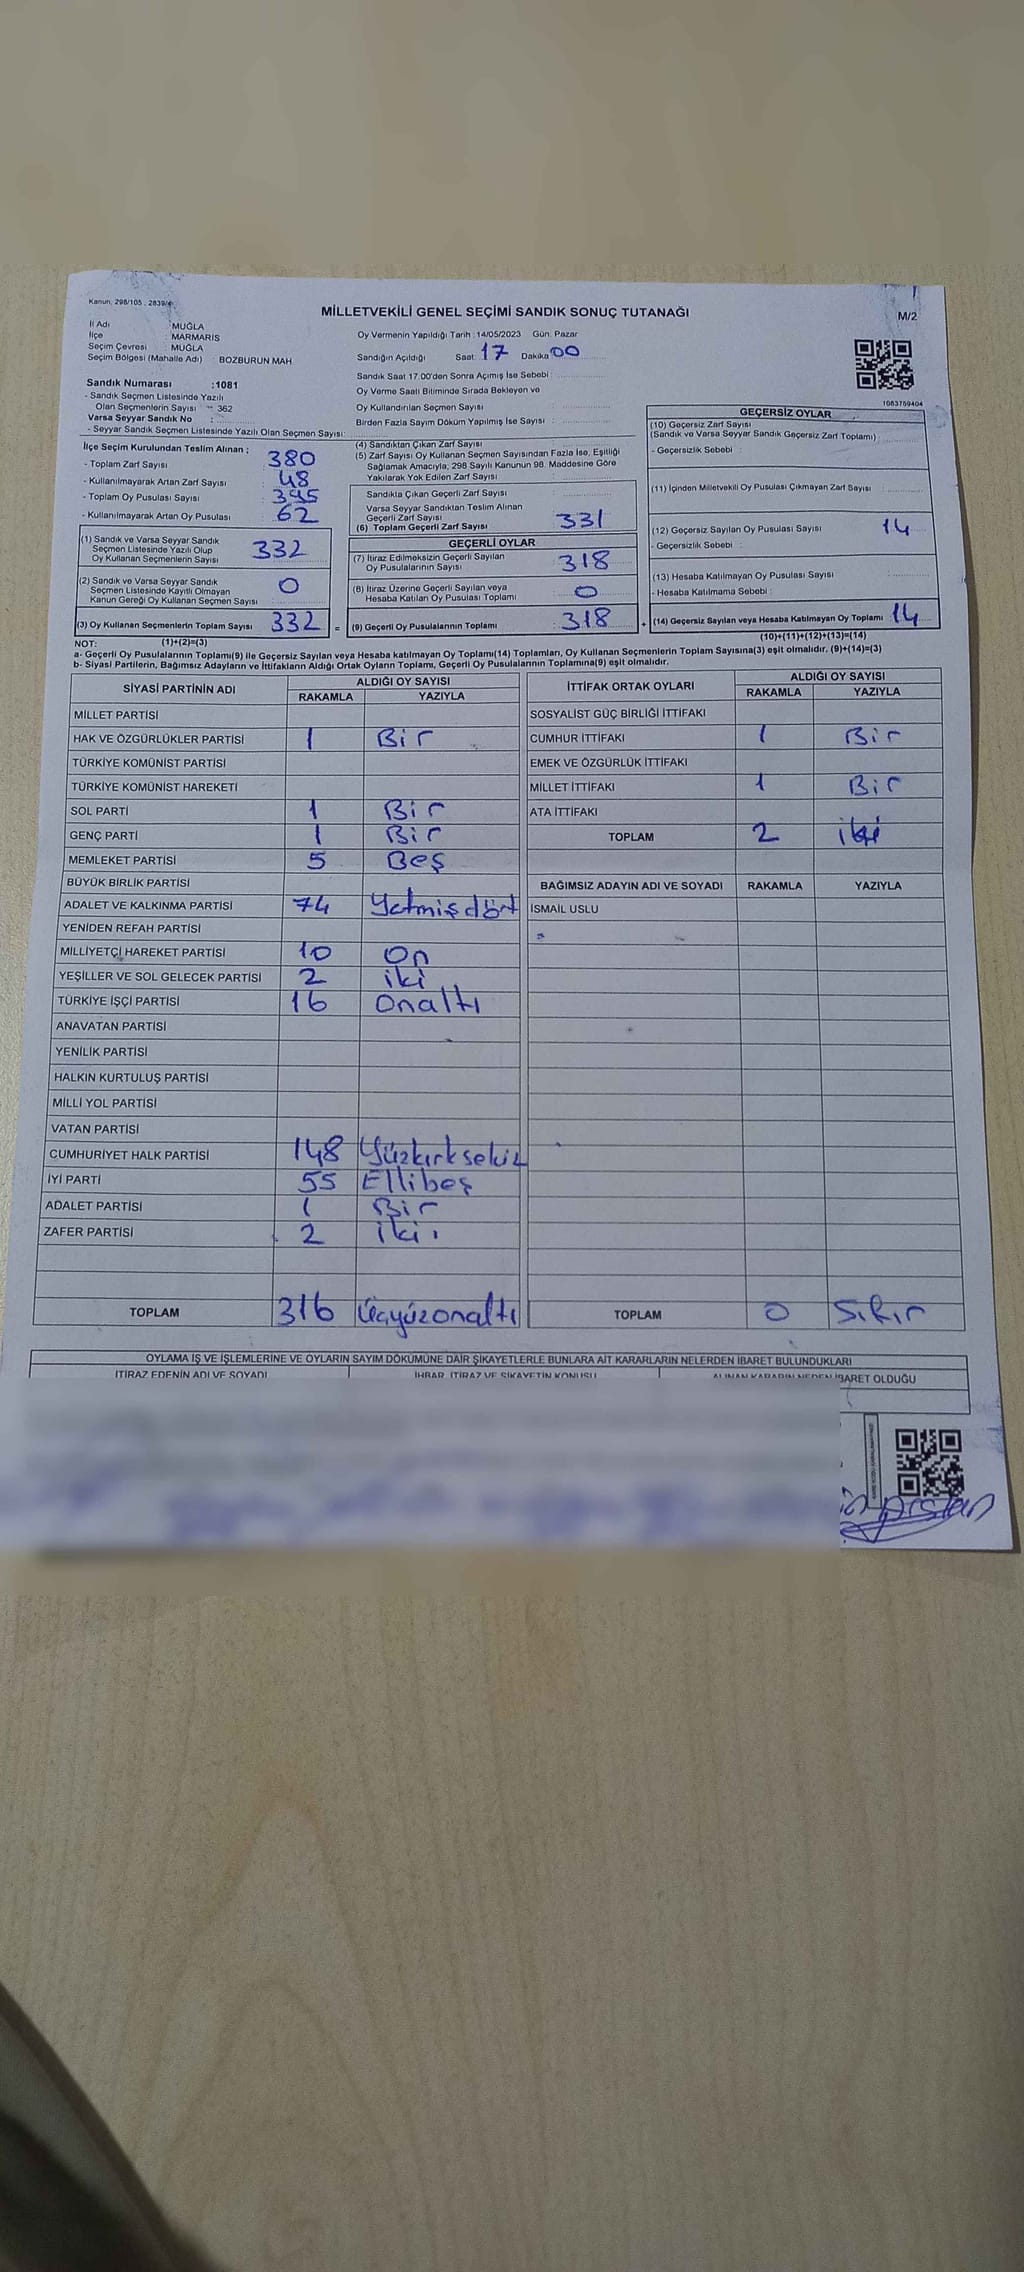 Kanun, 298/105 , 2839/
MİLLETVEKİLİ GENEL SEÇİMİ SANDIK SONUÇ TUTANAĞI
M/2
İl Adı : MUĞLA
İlçe : MARMARİS
Seçim Çevresi : MUĞLA
Seçim Bölgesi (Mahalle Adı) : BOZBURUN MAH
Sandık Numarası :1081
- Sandık Seçmen Listesinde Yazılı
Olan Seçmenlerin Sayısı : 362
Varsa Seyyar Sandık No :
- Seyyar Sandık Seçmen Listesinde Yazılı Olan Seçmen Sayısı:
Oy Vermenin Yapıldığı Tarih : 14/05/2023 Gün: Pazar
Sandığın Açıldığı Saat: 17 Dakika 00
Sandık Saat 17.00'den Sonra Açımış İse Sebebi :
Oy Verme Saati Bitiminde Sırada Bekleyen ve
Oy Kullandırılan Seçmen Sayısı
Birden Fazla Sayım Döküm Yapılmış İse Sayısı :
1083759404
İlçe Seçim Kurulundan Teslim Alınan ;
- Toplam Zarf Sayısı : 380
- Kullanılmayarak Artan Zarf Sayısı : 48
- Toplam Oy Pusulası Sayısı : 395
- Kullanılmayarak Artan Oy Pusulası : 62
(1) Sandık ve Varsa Seyyar Sandık
Seçmen Listesinde Yazılı Olup
Oy Kullanan Seçmenlerin Sayısı 332
(2) Sandık ve Varsa Seyyar Sandık
Seçmen Listesinde Kayıtlı Olmayan
Kanun Gereği Oy Kullanan Seçmen Sayısı 0
(3) Oy Kullanan Seçmenlerin Toplam Sayısı 332 =
(4) Sandıktan Çıkan Zarf Sayısı
(5) Zarf Sayısı Oy Kullanan Seçmen Sayısından Fazla İse, Eşitliği
Sağlamak Amacıyla, 298 Sayılı Kanunun 98. Maddesine Göre
Yakılarak Yok Edilen Zarf Sayısı
Sandıkta Çıkan Geçerli Zarf Sayısı
Varsa Seyyar Sandıktan Teslim Alınan
Geçerli Zarf Sayısı
(6) Toplam Geçerli Zarf Sayısı : 331
GEÇERLİ OYLAR
(7) İtiraz Edilmeksizin Geçerli Sayılan
Oy Pusulalarının Sayısı : 318
(8) İtiraz Üzerine Geçerli Sayılan veya
Hesaba Katılan Oy Pusulası Toplamı : 0
(9) Geçerli Oy Pusulalarının Toplamı : 318 +
GEÇERSİZ OYLAR
(10) Geçersiz Zarf Sayısı
(Sandık ve Varsa Seyyar Sandık Geçersiz Zarf Toplamı)
- Geçersizlik Sebebi :
(11) İçinden Milletvekili Oy Pusulası Çıkmayan Zarf Sayısı
(12) Geçersiz Sayılan Oy Pusulası Sayısı : 14
- Geçersizlik Sebebi :
(13) Hesaba Katılmayan Oy Pusulası Sayısı
- Hesaba Katılmama Sebebi :
(14) Geçersiz Sayılan veya Hesaba Katılmayan Oy Toplamı 14
NOT: (1)+(2)=(3) (10)+(11)+(12)+(13)=(14)
a- Geçerli Oy Pusulalarının Toplamı(9) ile Geçersiz Sayılan veya Hesaba katılmayan Oy Toplamı(14) Toplamları, Oy Kullanan Seçmenlerin Toplam Sayısına(3) eşit olmalıdır. (9)+(14)=(3)
b- Siyasi Partilerin, Bağımsız Adayların ve İttifakların Aldığı Ortak Oyların Toplamı, Geçerli Oy Pusulalarının Toplamına(9) eşit olmalıdır.
SİYASİ PARTİNİN ADI ALDIĞI OY SAYISI
RAKAMLA YAZIYLA
MİLLET PARTİSİ
HAK VE ÖZGÜRLÜKLER PARTİSİ 1 Bir
TÜRKİYE KOMÜNİST PARTİSİ
TÜRKİYE KOMÜNİST HAREKETİ
SOL PARTİ 1 Bir
GENÇ PARTİ 1 Bir
MEMLEKET PARTİSİ 5 Beş
BÜYÜK BİRLİK PARTİSİ
ADALET VE KALKINMA PARTİSİ 74 Yetmişdört
YENİDEN REFAH PARTİSİ
MİLLİYETÇİ HAREKET PARTİSİ 10 On
YEŞİLLER VE SOL GELECEK PARTİSİ 2 iki
TÜRKİYE İŞÇİ PARTİSİ 16 onaltı
ANAVATAN PARTİSİ
YENİLİK PARTİSİ
HALKIN KURTULUŞ PARTİSİ
MİLLİ YOL PARTİSİ
VATAN PARTİSİ
CUMHURİYET HALK PARTİSİ 148 Yüzkırksekiz
İYİ PARTİ 55 Ellibeş
ADALET PARTİSİ 1 Bir
ZAFER PARTİSİ 2 iki
TOPLAM 316 Üçyüzonaltı
İTTİFAK ORTAK OYLARI ALDIĞI OY SAYISI
RAKAMLA YAZIYLA
SOSYALİST GÜÇ BİRLİĞİ İTTİFAKI
CUMHUR İTTİFAKI 1 Bir
EMEK VE ÖZGÜRLÜK İTTİFAKI
MİLLET İTTİFAKI 1 Bir
ATA İTTİFAKI
TOPLAM 2 iki
BAĞIMSIZ ADAYIN ADI VE SOYADI RAKAMLA YAZIYLA
İSMAİL USLU
TOPLAM 0 Sıfır
OYLAMA İŞ VE İŞLEMLERİNE VE OYLARIN SAYIM DÖKÜMÜNE DAİR ŞİKAYETLERLE BUNLARA AİT KARARLARIN NELERDEN İBARET BULUNDUKLARI
İTİRAZ EDENİN ADI VE SOYADI İHBAR, İTİRAZ VE ŞİKAYETİN KONUSU ALINAN KARARIN NEDEN İBARET OLDUĞU